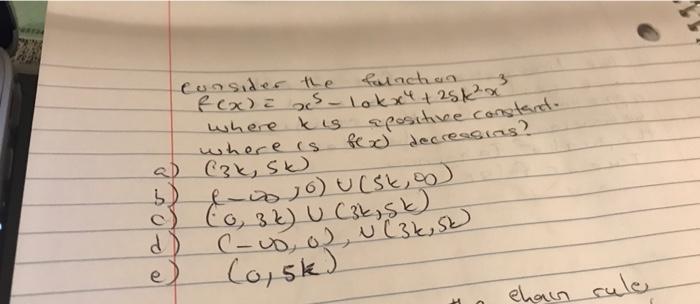 consider the function
f(x) = x⁵ - 10kx⁴ + 25k²x³
where k is a positive constant.
where is f(x) decreasing?
a) (3k, 5k)
b) (-∞, 0) ∪ (5k, ∞)
c) (0, 3k) ∪ (3k, 5k)
d) (-∞, 0), ∪ (3k, 5k)
e) (0, 5k)
chain rule